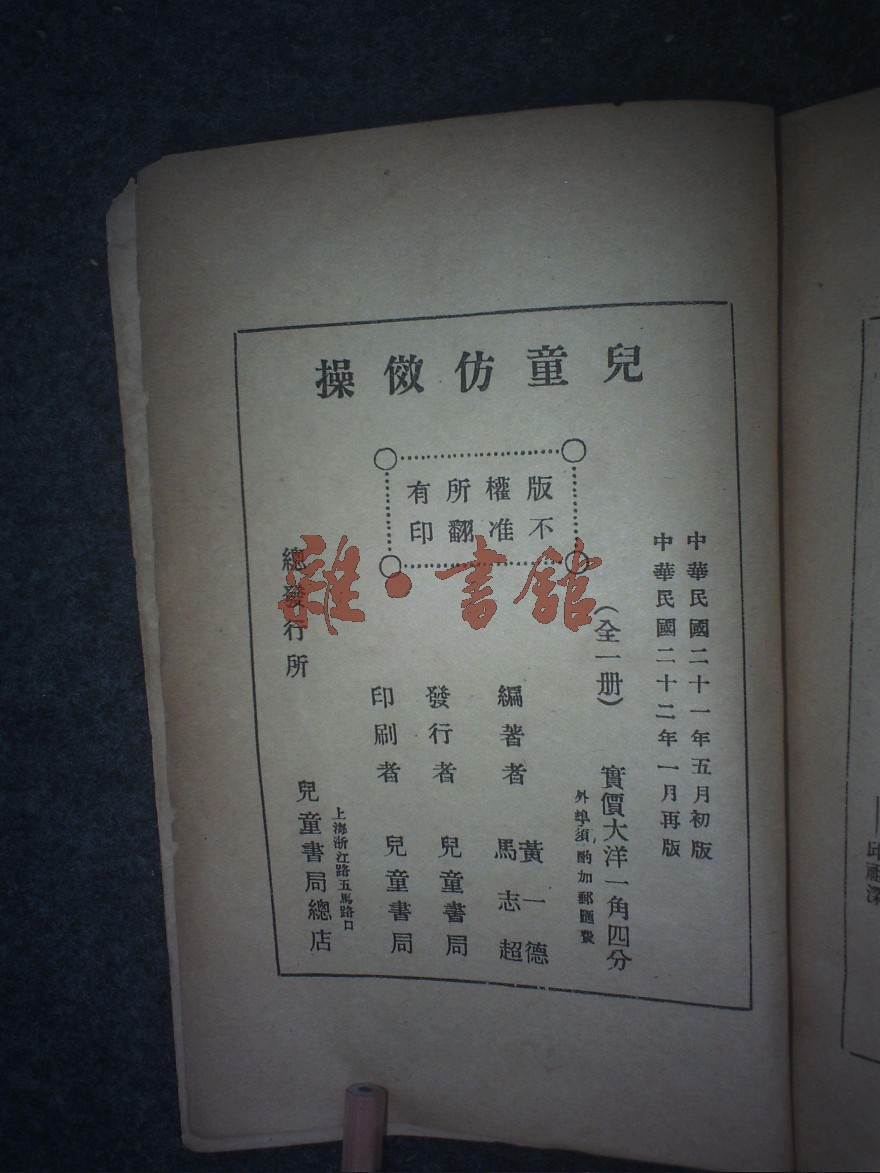 兒童仿傚操
版權所有
不准翻印
中華民國二十一年五月初版
中華民國二十二年一月再版
(全一册)
實價大洋一角四分
外埠須酌加郵匯費
編著者 黃一德
馬志超
發行者 兒童書局
印刷者 兒童書局
總發行所
上海浙江路五馬路口
兒童書局總店
雜·書館